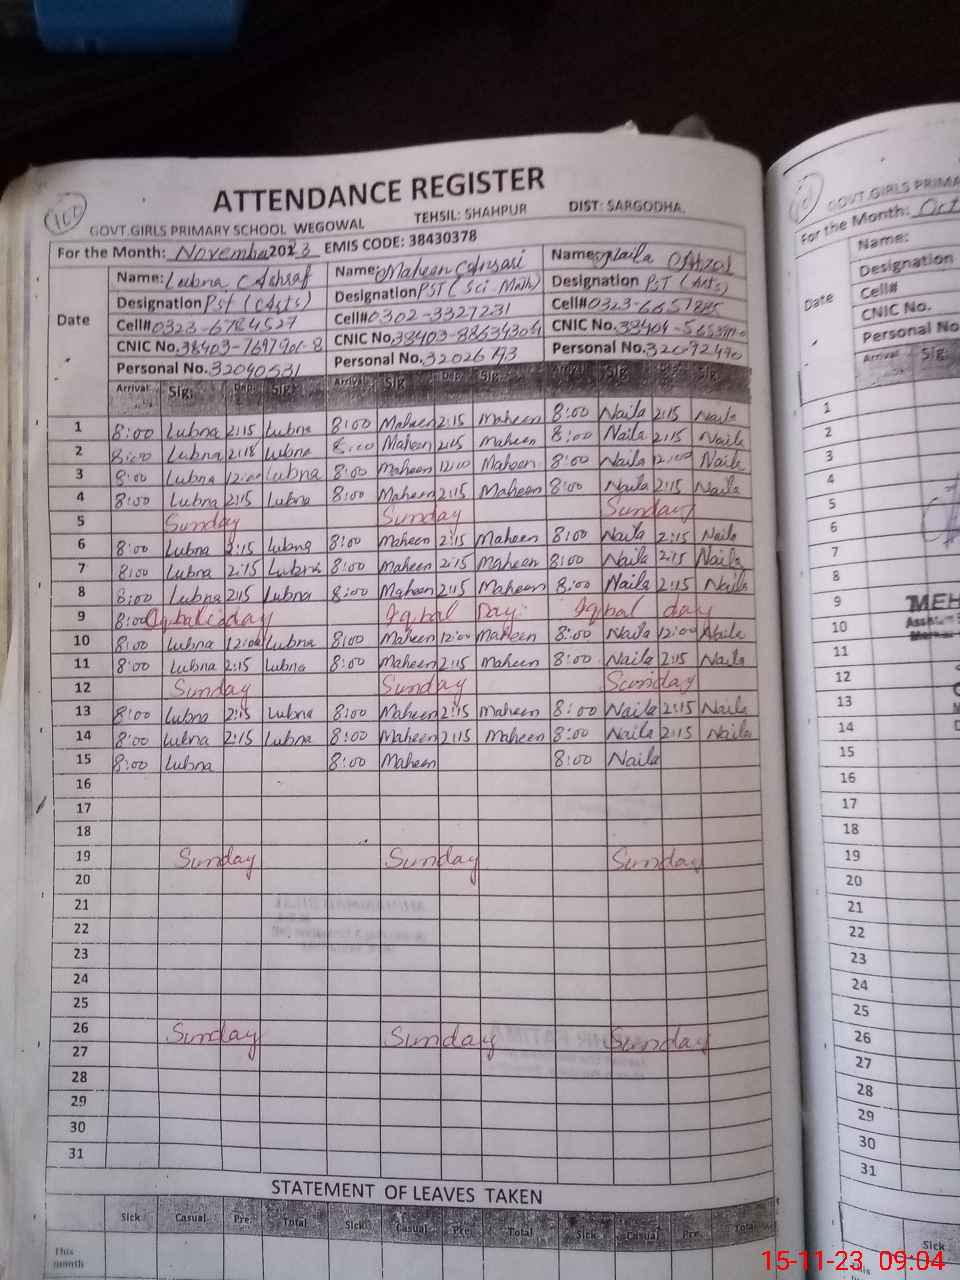 ATTENDANCE REGISTER
GOVT.GIRLS PRIMARY SCHOOL WEGOWAL TEHSIL: SHAHPUR DIST: SARGODHA.
For the Month: November 2023 EMIS CODE: 38430378
Date
Name: Lubna Ashraf Name: Maheen Ansari Name: Naila Afzal
Designation PST (Arts) Designation PST (Sci Math) Designation PST (Arts)
Cell# 0323-6784527 Cell# 0302-3327231 Cell# 0323-6657885
CNIC No. CNIC No. CNIC No.
Personal No. 32040531 Personal No. Personal No. 32092490
Arrival Sig. Dep. Sig. Arrival Sig. Dep. Sig. Arrival Sig. Dep. Sig.
1 8:00 Lubna 2:15 Lubna 8:00 Maheen 2:15 Maheen 8:00 Naila 2:15 Naila
2 8:00 Lubna 2:15 Lubna 8:00 Maheen 2:15 Maheen 8:00 Naila 2:15 Naila
3 8:00 Lubna 12:00 Lubna 8:00 Maheen 12:00 Maheen 8:00 Naila 12:00 Naila
4 8:00 Lubna 2:15 Lubna 8:00 Maheen 2:15 Maheen 8:00 Naila 2:15 Naila
5 Sunday Sunday Sunday
6 8:00 Lubna 2:15 Lubna 8:00 Maheen 2:15 Maheen 8:00 Naila 2:15 Naila
7 8:00 Lubna 2:15 Lubna 8:00 Maheen 2:15 Maheen 8:00 Naila 2:15 Naila
8 8:00 Lubna 2:15 Lubna 8:00 Maheen 2:15 Maheen 8:00 Naila 2:15 Naila
9 8:00 Iqbal day Iqbal Day Iqbal day
10 8:00 Lubna 12:00 Lubna 8:00 Maheen 12:00 Maheen 8:00 Naila 12:00 Naila
11 8:00 Lubna 2:15 Lubna 8:00 Maheen 2:15 Maheen 8:00 Naila 2:15 Naila
12 Sunday Sunday Sunday
13 8:00 Lubna 2:15 Lubna 8:00 Maheen 2:15 Maheen 8:00 Naila 2:15 Naila
14 8:00 Lubna 2:15 Lubna 8:00 Maheen 2:15 Maheen 8:00 Naila 2:15 Naila
15 8:00 Lubna 8:00 Maheen 8:00 Naila
16
17
18
19 Sunday Sunday Sunday
20
21
22
23
24
25
26 Sunday Sunday Sunday
27
28
29
30
31
STATEMENT OF LEAVES TAKEN
Sick Casual Pre. Total Sick Casual Pre. Total Sick Casual Pre. Total
This
month
GOVT.GIRLS PRIMA
For the Month: Oct
Name:
Designation
Date
Cell#
CNIC No.
Personal No
Arrival Sig.
1
2
3
4
5
6
7
8
9
MEH
10
11
12
13
14
15
16
17
18
19
20
21
22
23
24
25
26
27
28
29
30
31
Sick
This
15-11-23 09:04